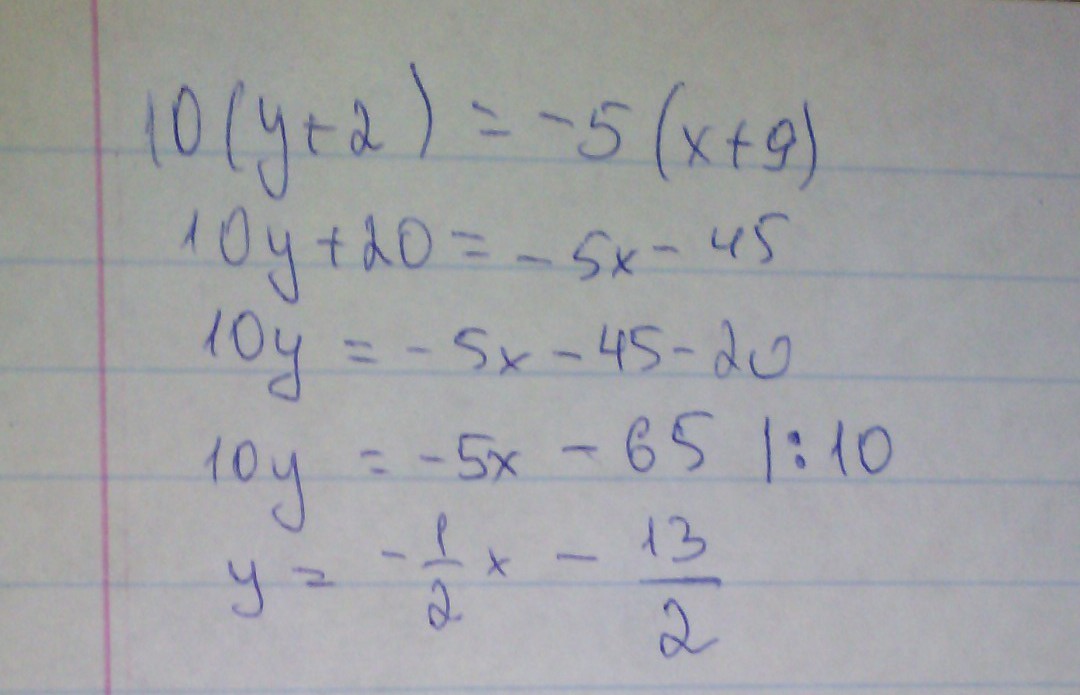 10(y+2) = -5(x+9)
10y+20 = -5x - 45
10y = -5x - 45 - 20
10y = -5x - 65 |:10
y = -1/2 x - 13/2